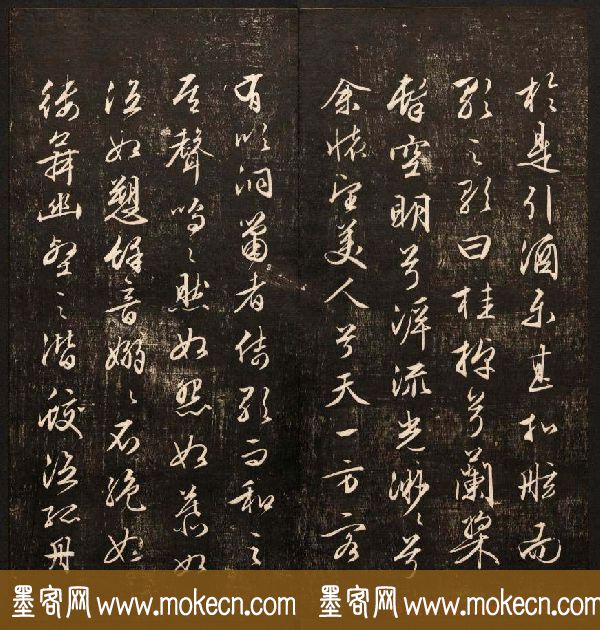 於是引酒樂甚扣舷而
歌之歌曰桂棹兮蘭槳
擊空明兮泝流光渺〻兮
余懷望美人兮天一方客
有吹洞簫者倚歌而和之
其聲嗚〻然如怨如慕如
泣如愬餘音嫋〻不絕如
縷舞幽壑之潛蛟泣孤舟
墨客网 www.mokecn.com 墨客网 www.mokecn.com